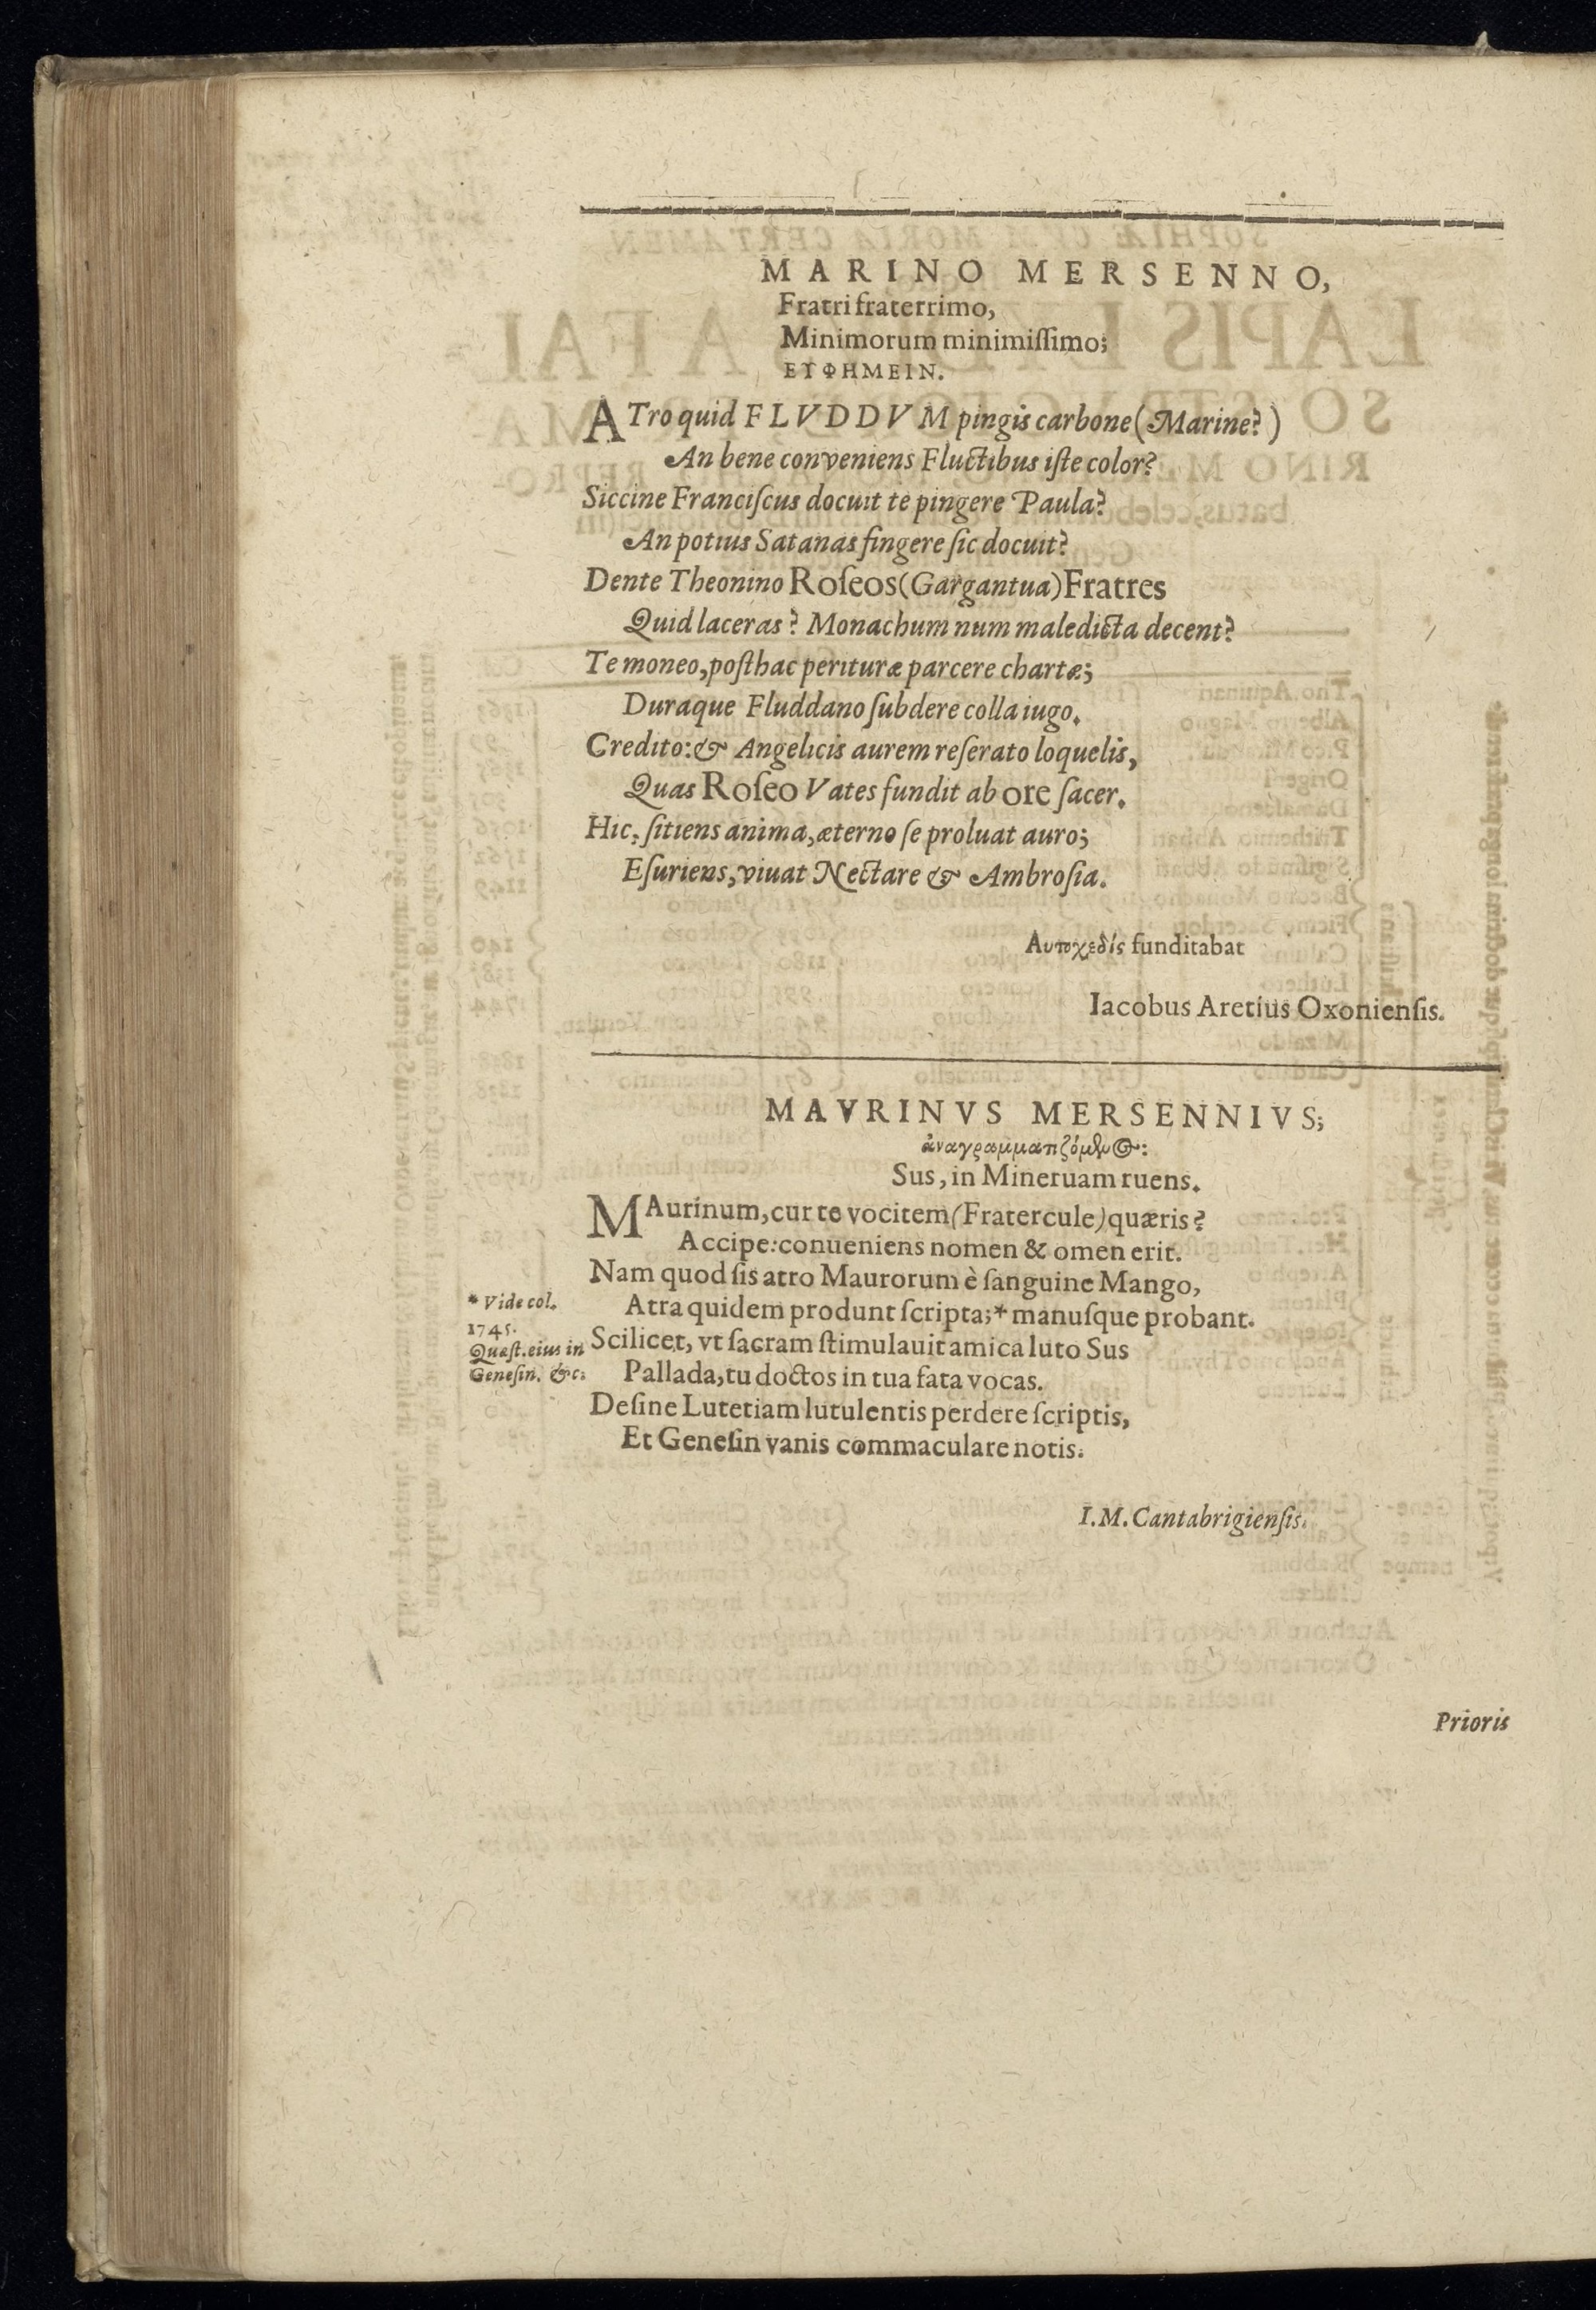 MARINO MERSENNO,
Fratri fraterrimo,
Minimorum minimiſſimo;
ΕΥΦΗΜΕΙΝ.
ATro quid FLVDDVM pingis carbone (Marine?)
An bene conveniens Fluctibus iſte color?
Siccine Franciſcus docuit te pingere Paula?
An potius Satanas fingere ſic docuit?
Dente Theonino Roſeos (Gargantua) Fratres
Quid laceras? Monachum num maledicta decent?
Te moneo, poſthac perituræ parcere chartæ;
Duraque Fluddano ſubdere colla iugo.
Credito: & Angelicis aurem reſerato loquelis,
Quas Roſeo Vates fundit ab ore ſacer.
Hic, ſitiens anima, æterno ſe proluat auro;
Eſuriens, viuat Nectare & Ambroſia.
Αυτοχεδίς funditabat
Iacobus Aretius Oxonienſis.
MAVRINVS MERSENNIVS;
ἀναγραμματιζόμενος:
Sus, in Mineruam ruens.
MAurinum, cur te vocitem (Fratercule) quæris?
Accipe: conueniens nomen & omen erit.
Nam quod ſis atro Maurorum è ſanguine Mango,
Atra quidem produnt ſcripta; * manuſque probant.
* Vide col.
1745.
Quæſt. eius in
Geneſin. &c.
Scilicet, vt ſacram ſtimulauit amica luto Sus
Pallada, tu doctos in tua fata vocas.
Deſine Lutetiam lutulentis perdere ſcriptis,
Et Geneſin vanis commaculare notis.
I. M. Cantabrigienſis.
Prioris